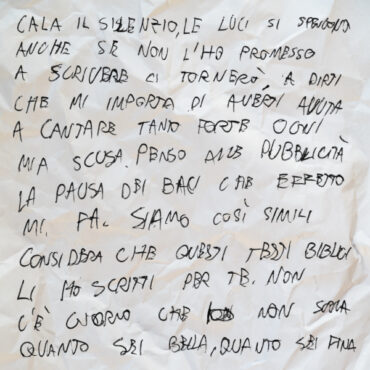 CALA IL SILENZIO, LE LUCI SI SPENGONO
ANCHE SE NON L'HO PROMESSO
A SCRIVERE CI TORNERÒ, A DIRTI
CHE MI IMPORTA DI AVERTI AVUTA
A CANTARE TANTO FORTE OGNI
MIA SCUSA. PENSO ALLE PUBBLICITÀ
LA PAUSA DEI BACI CHE EFFETTO
MI FA. SIAMO COSÌ SIMILI
CONSIDERA CHE QUESTI TESTI BIBLICI
LI HO SCRITTI PER TE. NON
C'È GIORNO CHE NON
QUANTO SEI BELLA, QUANTO SEI FINA